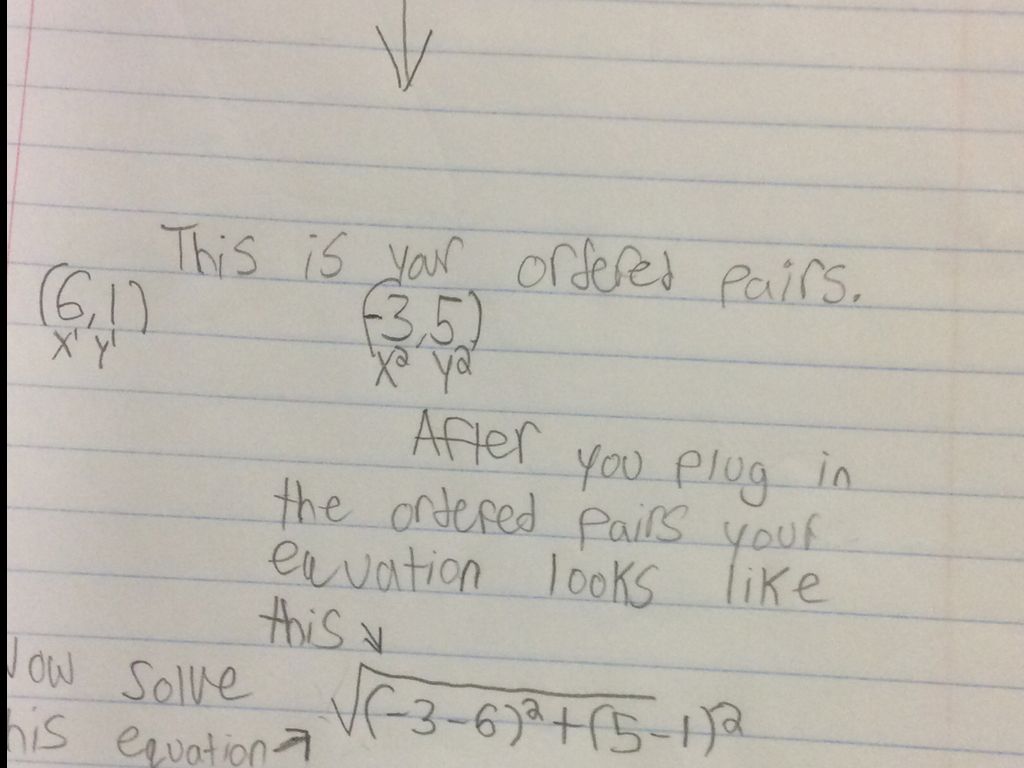 This is your ordered pairs.
(6,1) (-3,5)
x¹ y¹ x² y²
After you plug in
the ordered pairs your
equation looks like
this ↘
Now solve √(-3-6)²+(5-1)²
this equation→